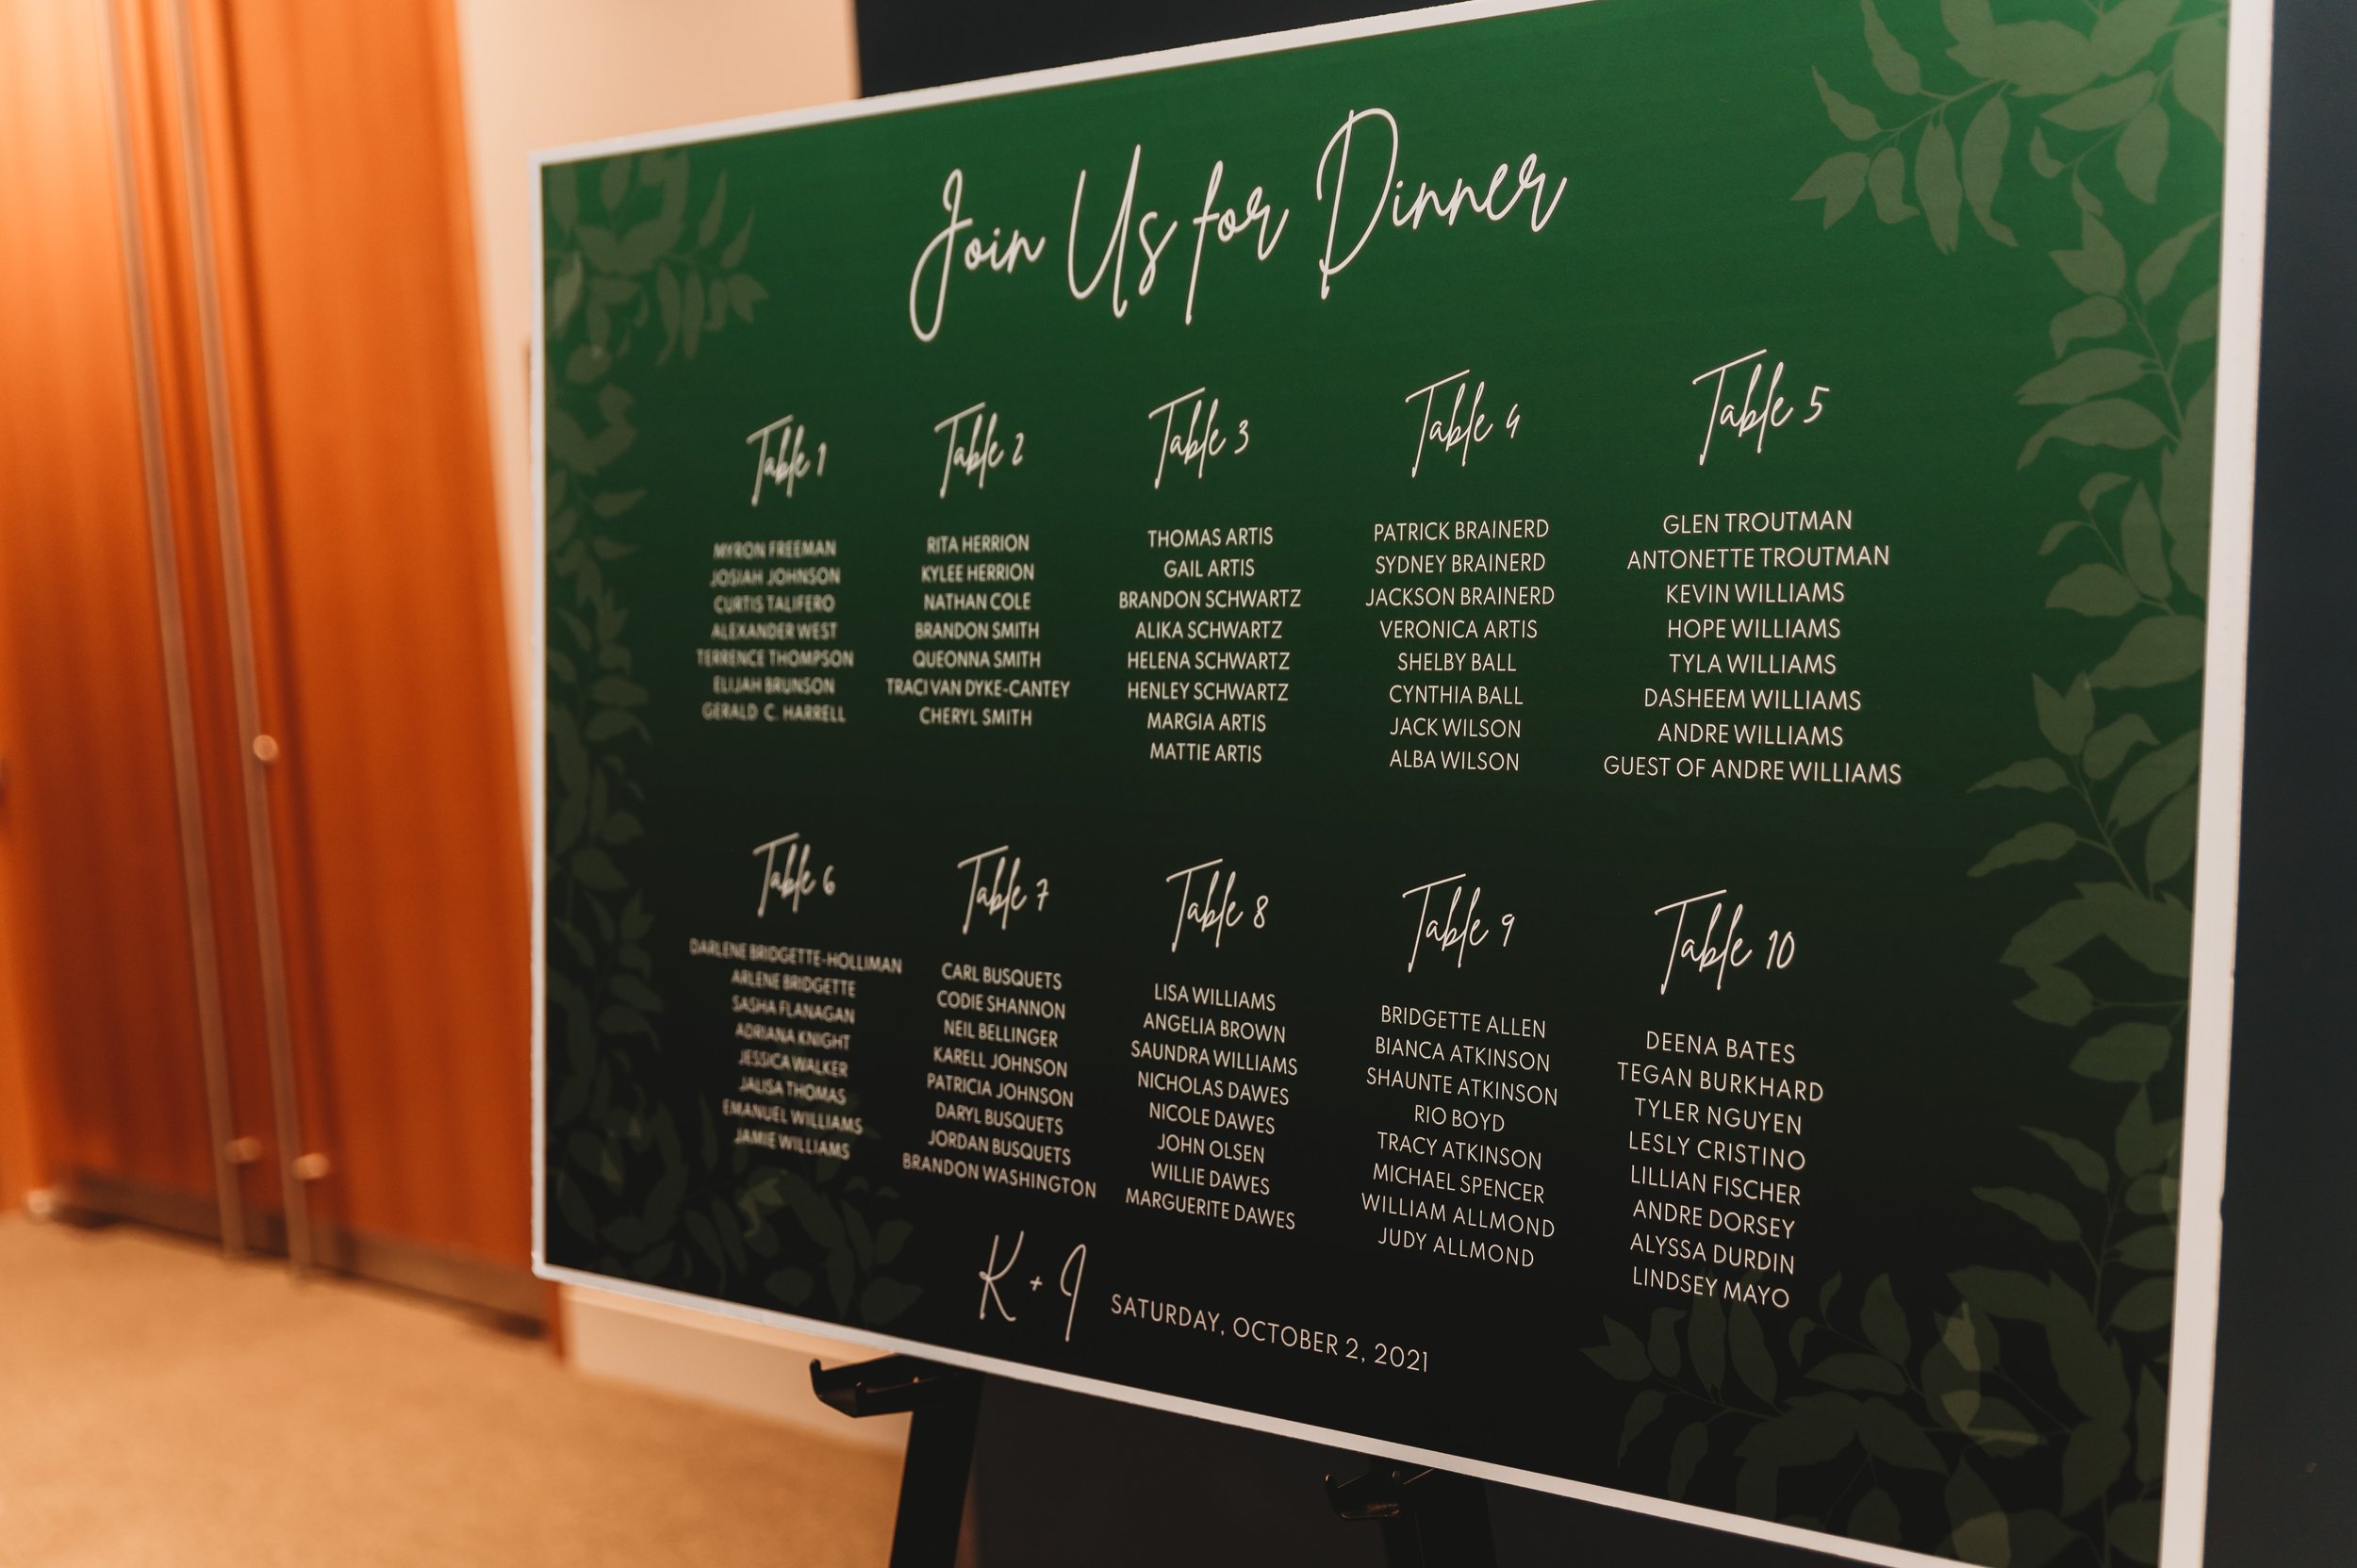 Join Us for Dinner
Table 1
MYRON FREEMAN
JOSIAH JOHNSON
CURTIS TALIFERO
ALEXANDER WEST
TERRENCE THOMPSON
ELIJAH BRUNSON
GERALD C. HARRELL
Table 2
RITA HERRION
KYLEE HERRION
NATHAN COLE
BRANDON SMITH
QUEONNA SMITH
TRACI VAN DYKE-CANTEY
CHERYL SMITH
Table 3
THOMAS ARTIS
GAIL ARTIS
BRANDON SCHWARTZ
ALIKA SCHWARTZ
HELENA SCHWARTZ
HENLEY SCHWARTZ
MARGIA ARTIS
MATTIE ARTIS
Table 4
PATRICK BRAINERD
SYDNEY BRAINERD
JACKSON BRAINERD
VERONICA ARTIS
SHELBY BALL
CYNTHIA BALL
JACK WILSON
ALBA WILSON
Table 5
GLEN TROUTMAN
ANTONETTE TROUTMAN
KEVIN WILLIAMS
HOPE WILLIAMS
TYLA WILLIAMS
DASHEEM WILLIAMS
ANDRE WILLIAMS
GUEST OF ANDRE WILLIAMS
Table 6
DARLENE BRIDGETTE-HOLLIMAN
ARLENE BRIDGETTE
SASHA FLANAGAN
ADRIANA KNIGHT
JESSICA WALKER
JALISA THOMAS
EMANUEL WILLIAMS
JAMIE WILLIAMS
Table 7
CARL BUSQUETS
CODIE SHANNON
NEIL BELLINGER
KARELL JOHNSON
PATRICIA JOHNSON
DARYL BUSQUETS
JORDAN BUSQUETS
BRANDON WASHINGTON
Table 8
LISA WILLIAMS
ANGELIA BROWN
SAUNDRA WILLIAMS
NICHOLAS DAWES
NICOLE DAWES
JOHN OLSEN
WILLIE DAWES
MARGUERITE DAWES
Table 9
BRIDGETTE ALLEN
BIANCA ATKINSON
SHAUNTE ATKINSON
RIO BOYD
TRACY ATKINSON
MICHAEL SPENCER
WILLIAM ALLMOND
JUDY ALLMOND
Table 10
DEENA BATES
TEGAN BURKHARD
TYLER NGUYEN
LESLY CRISTINO
LILLIAN FISCHER
ANDRE DORSEY
ALYSSA DURDIN
LINDSEY MAYO
K + I SATURDAY, OCTOBER 2, 2021